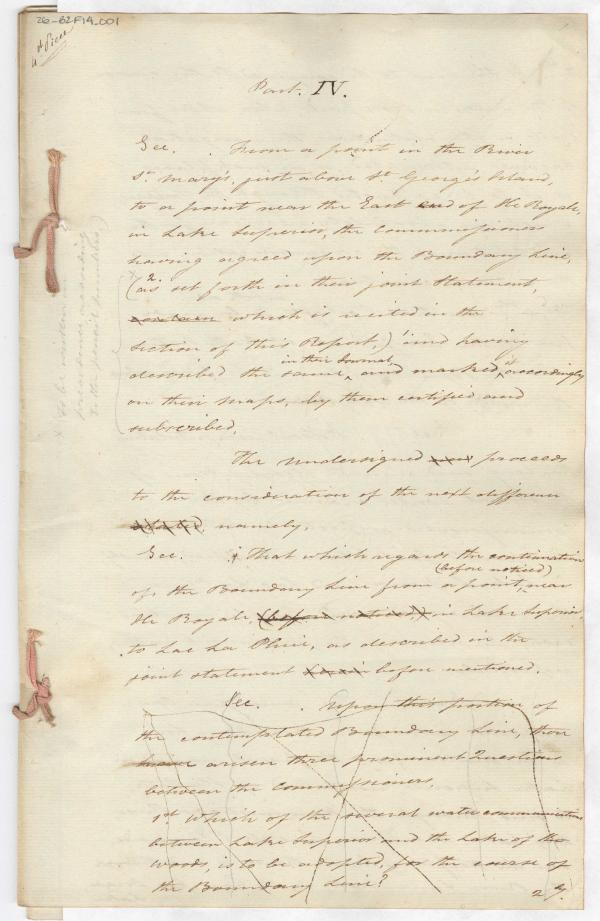 26-B2F14.001
Part. IV.
Sec. . From a point in the River
St. Mary's, just above St. George's Island,
to a point near the East end of Ile Royale,
in Lake Superior, the Commissioners
having agreed upon the Boundary Line,
(as set forth in their joint Statement,
which is recited in the 2.
Section of this Report,) and having
described the same in their Journal, and marked it accordingly
on their maps, by them certified and
subscribed.
The undersigned proceeds
to the consideration of the next difference
namely.
Sec. That which regards the continuation
of the Boundary Line from a point, (before noticed) near
Ile Royale (before noticed,) in Lake Superior,
to Lac La Pluie, as described in the
joint statement before mentioned.
Sec. . Upon this portion of
the contemplated Boundary Line, there
have arisen three prominent Questions
between the Commissioners.
1st Which of the several water communications
between Lake Superior and the Lake of the
Woods, is to be adopted, for the course of
the Boundary Line?
2